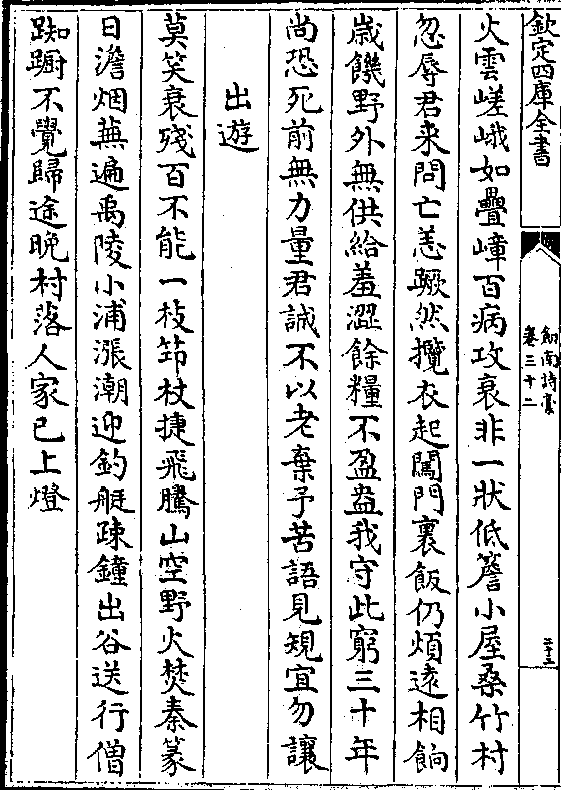 欽定四庫全書
劍南詩稾
卷三十二
二十三
火雲嵯峨如疊嶂百病攻衰非一狀低簷小屋桑竹村
忽辱君来問亡恙蹶然攬衣起闖門裹飯仍煩逺相餉
嵗饑野外無供給羞澀餘糧不盈盎我守此窮三十年
尚恐死前無力量君誠不以老棄予苦語見規宜勿讓
出遊
莫笑衰殘百不能一枝筇杖捷飛騰山空野火焚秦篆
日澹烟蕪遍禹陵小浦漲潮迎釣艇踈鐘出谷送行僧
踟蹰不覺歸途晚村落人家已上燈